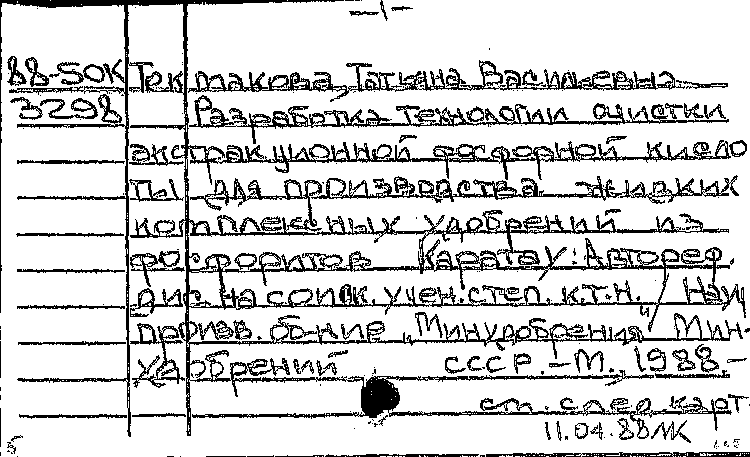 —1—
88-50К Токмакова, Татьяна Васильевна
3298 Разработка технологии очистки
экстракционной фосфорной кисло
ты для производства жидких
комплексных удобрений из
фосфоритов Каратау: Автореф.
дис. на соиск. учен. степ. к.т.н. / Науч
произв. об-ние „Минудобрения" Мин-
удобрений СССР. – М., 1988. –
см. след. карт.
11.04.88 МК
5